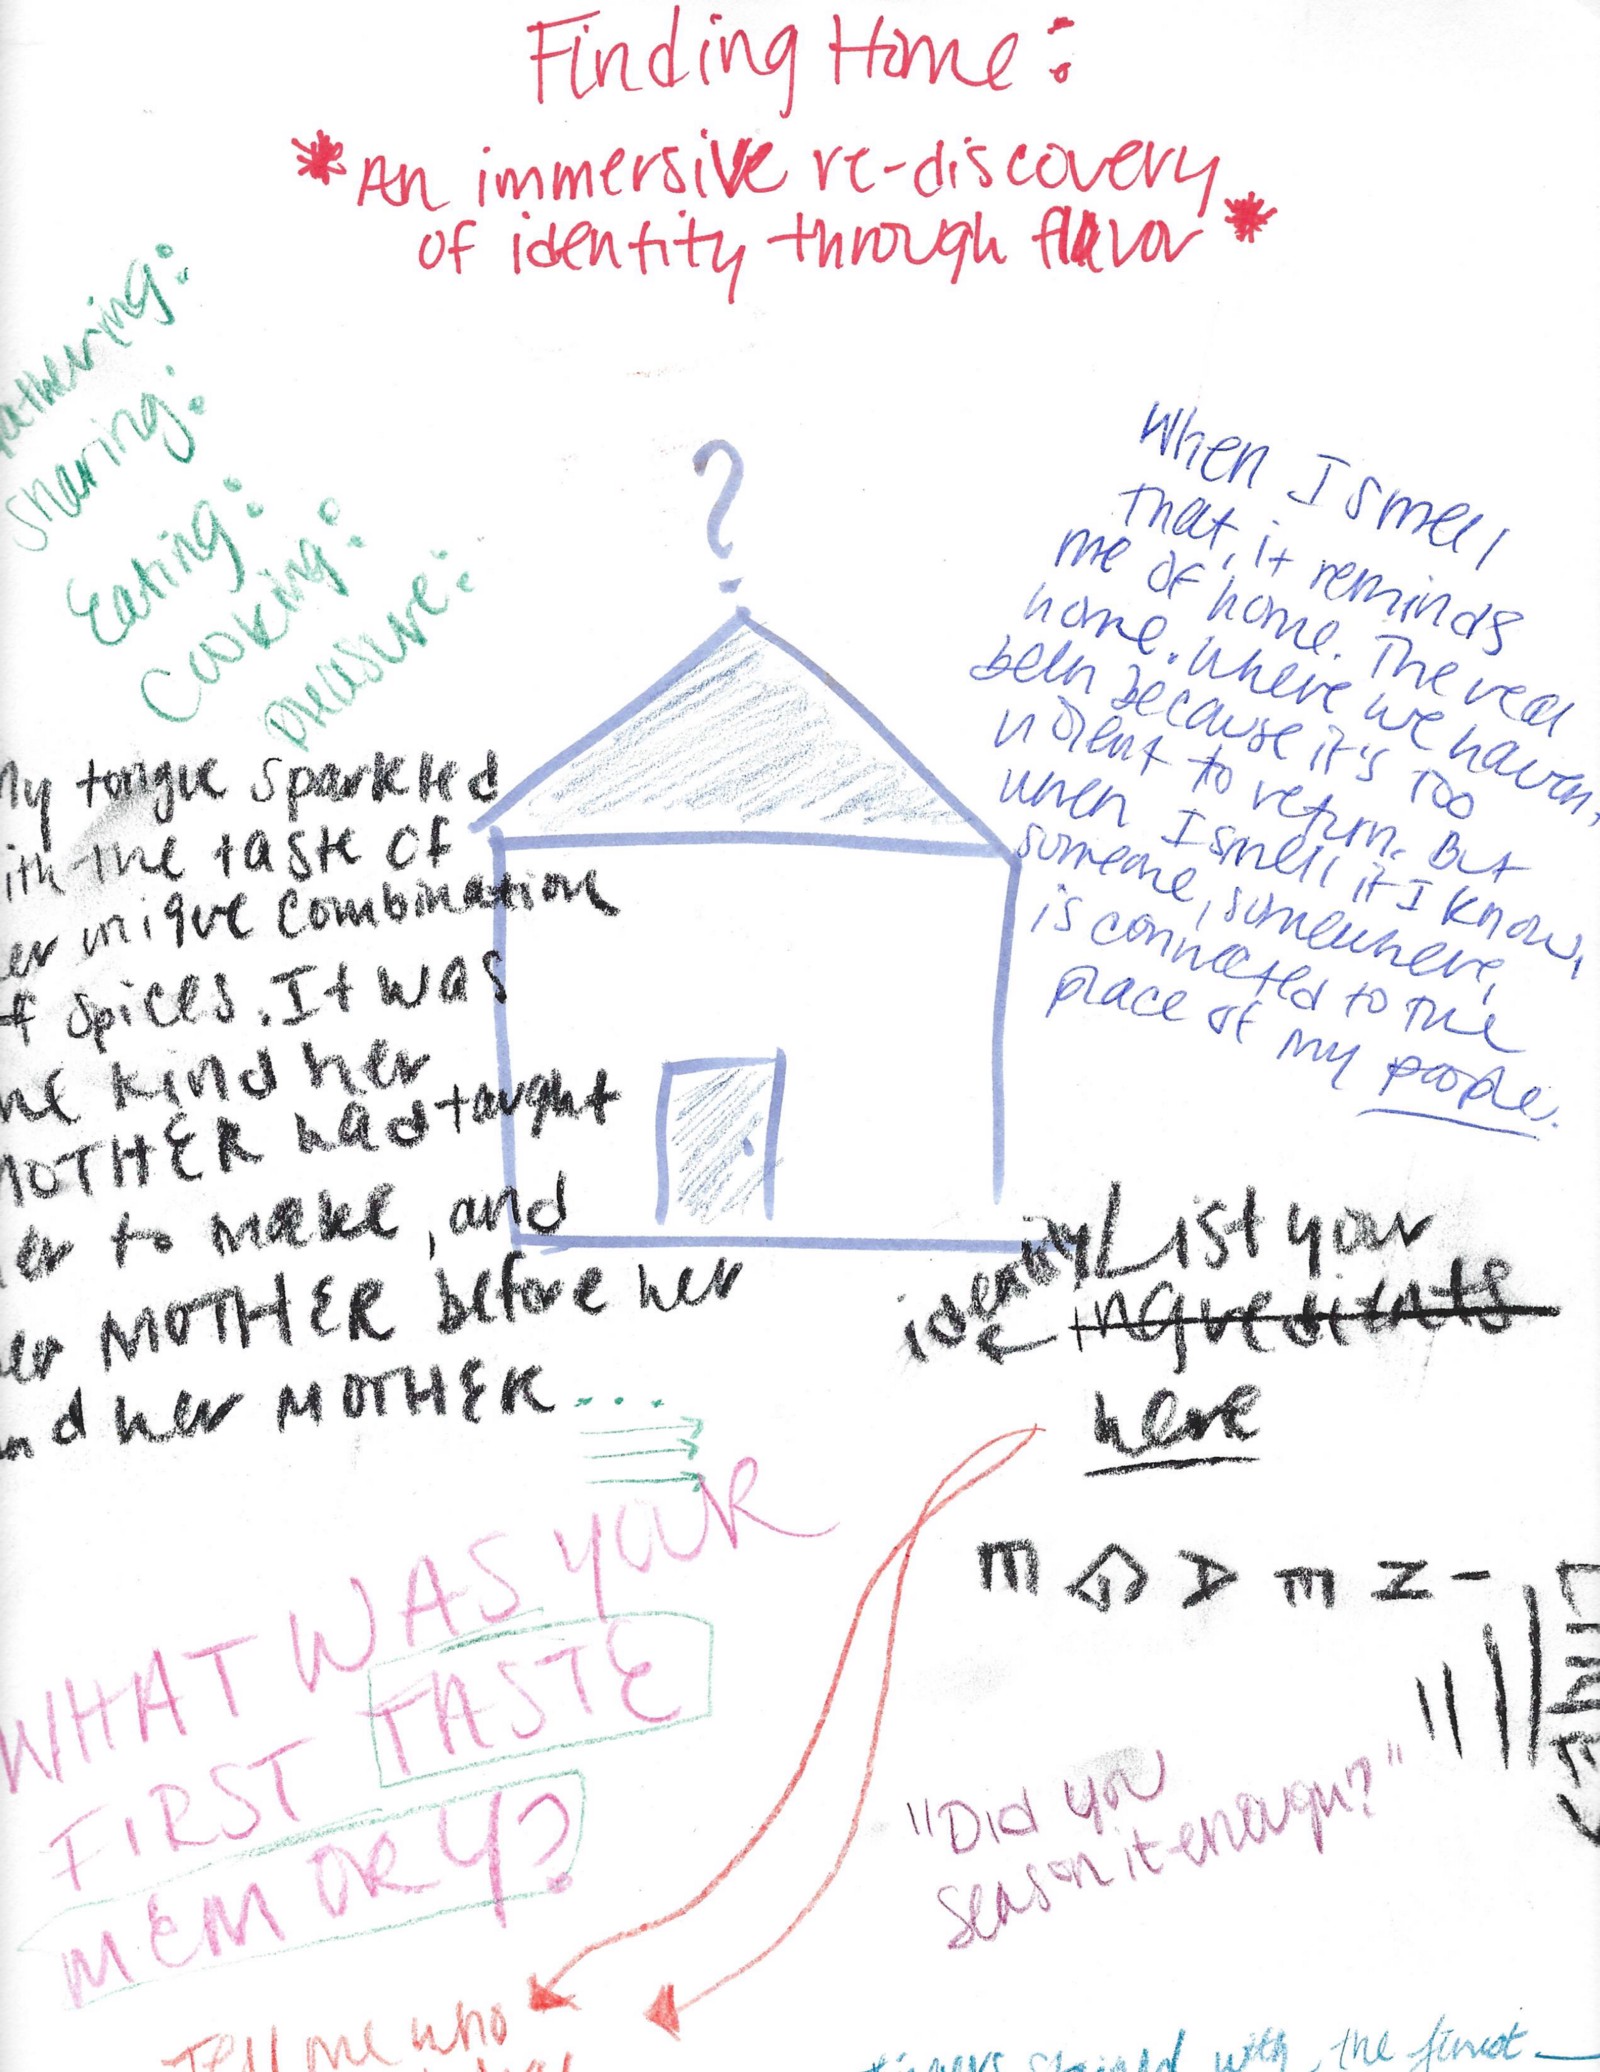 Finding Home:
*An immersive re-discovery
of identity through flavor*
athering:
Sharing:
Eating:
Cooking:
pleasure:
?
When I smell
that, it reminds
me of home. The real
home. Where we haven't
been because it's too
violent to return. But
when I smell it I know,
someone, somewhere,
is connected to the
place of my people.
My tongue sparkled
ith the taste of
er unique combination
f spices. It was
he kind her
MOTHER had taught
er to make, and
er MOTHER before her
nd her MOTHER....
identity
List your
ingredients
here
WHAT WAS YOUR
FIRST TASTE
MEMORY?
LINEAGE
"Did you
season it enough?"
Tell me who
stained with the finest